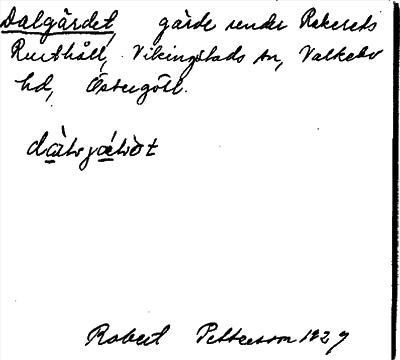 Dalgärdet, gärde under Rakereds
Rusthåll, Vikingstads sn, Valkebo
hd, Östergötl.
Robert Petterson 1927